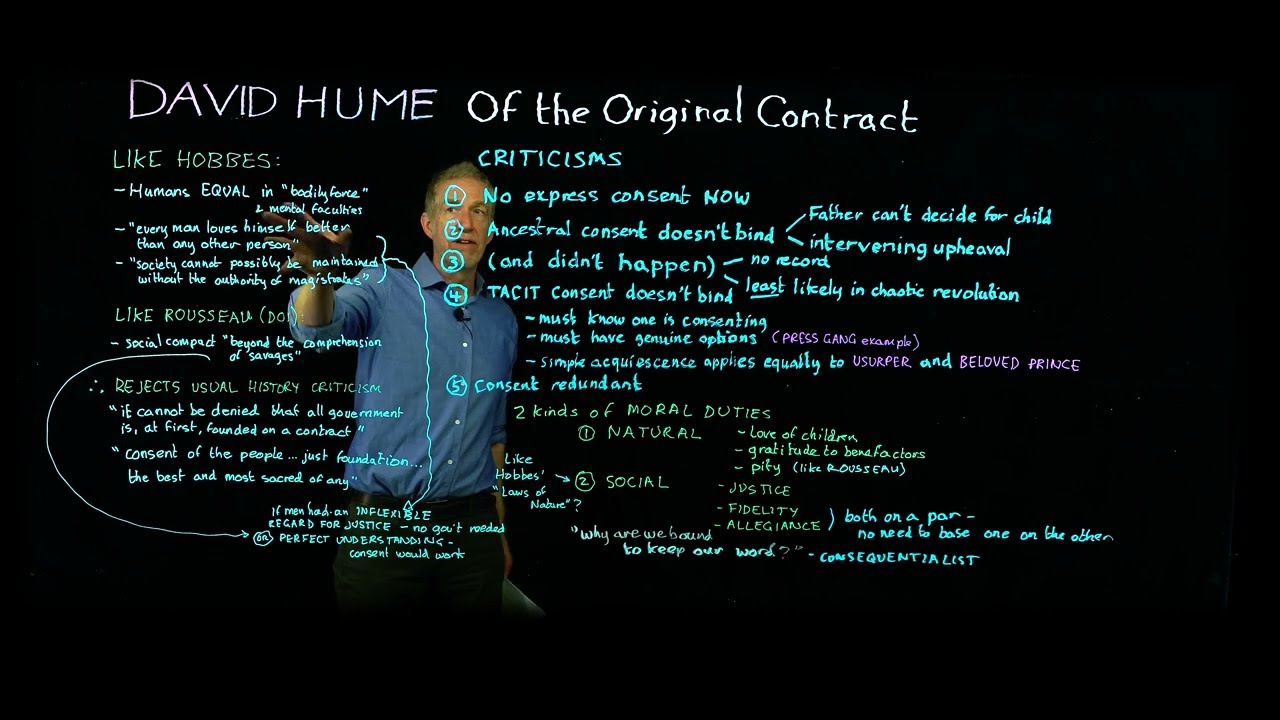 DAVID HUME Of the Original Contract
LIKE HOBBES:
- Humans EQUAL in "bodily force"
& mental faculties
- "every man loves himself better
than any other person"
- "society cannot possibly be maintained
without the authority of magistrates"
LIKE ROUSSEAU (DOI):
- social compact "beyond the comprehension
of savages"
∴ REJECTS USUAL HISTORY CRITICISM
"it cannot be denied that all government
is, at first, founded on a contract"
"consent of the people... just foundation...
the best and most sacred of any"
If men had an INFLEXIBLE
REGARD FOR JUSTICE - no gov't needed
OR PERFECT UNDERSTANDING -
consent would work
CRITICISMS
1 No express consent NOW
2 Ancestral consent doesn't bind
Father can't decide for child
intervening upheaval
3 (and didn't happen)
no record
least likely in chaotic revolution
4 TACIT consent doesn't bind
- must know one is consenting
- must have genuine options (PRESS GANG example)
- simple acquiescence applies equally to USURPER and BELOVED PRINCE
5 Consent redundant
2 kinds of MORAL DUTIES
1 NATURAL
- love of children
- gratitude to benefactors
- pity (like ROUSSEAU)
Like
Hobbes'
"Laws of
Nature"?
2 SOCIAL
- JUSTICE
- FIDELITY
- ALLEGIANCE
both on a par -
no need to base one on the other
"why are we bound
to keep our word?" - CONSEQUENTIALIST